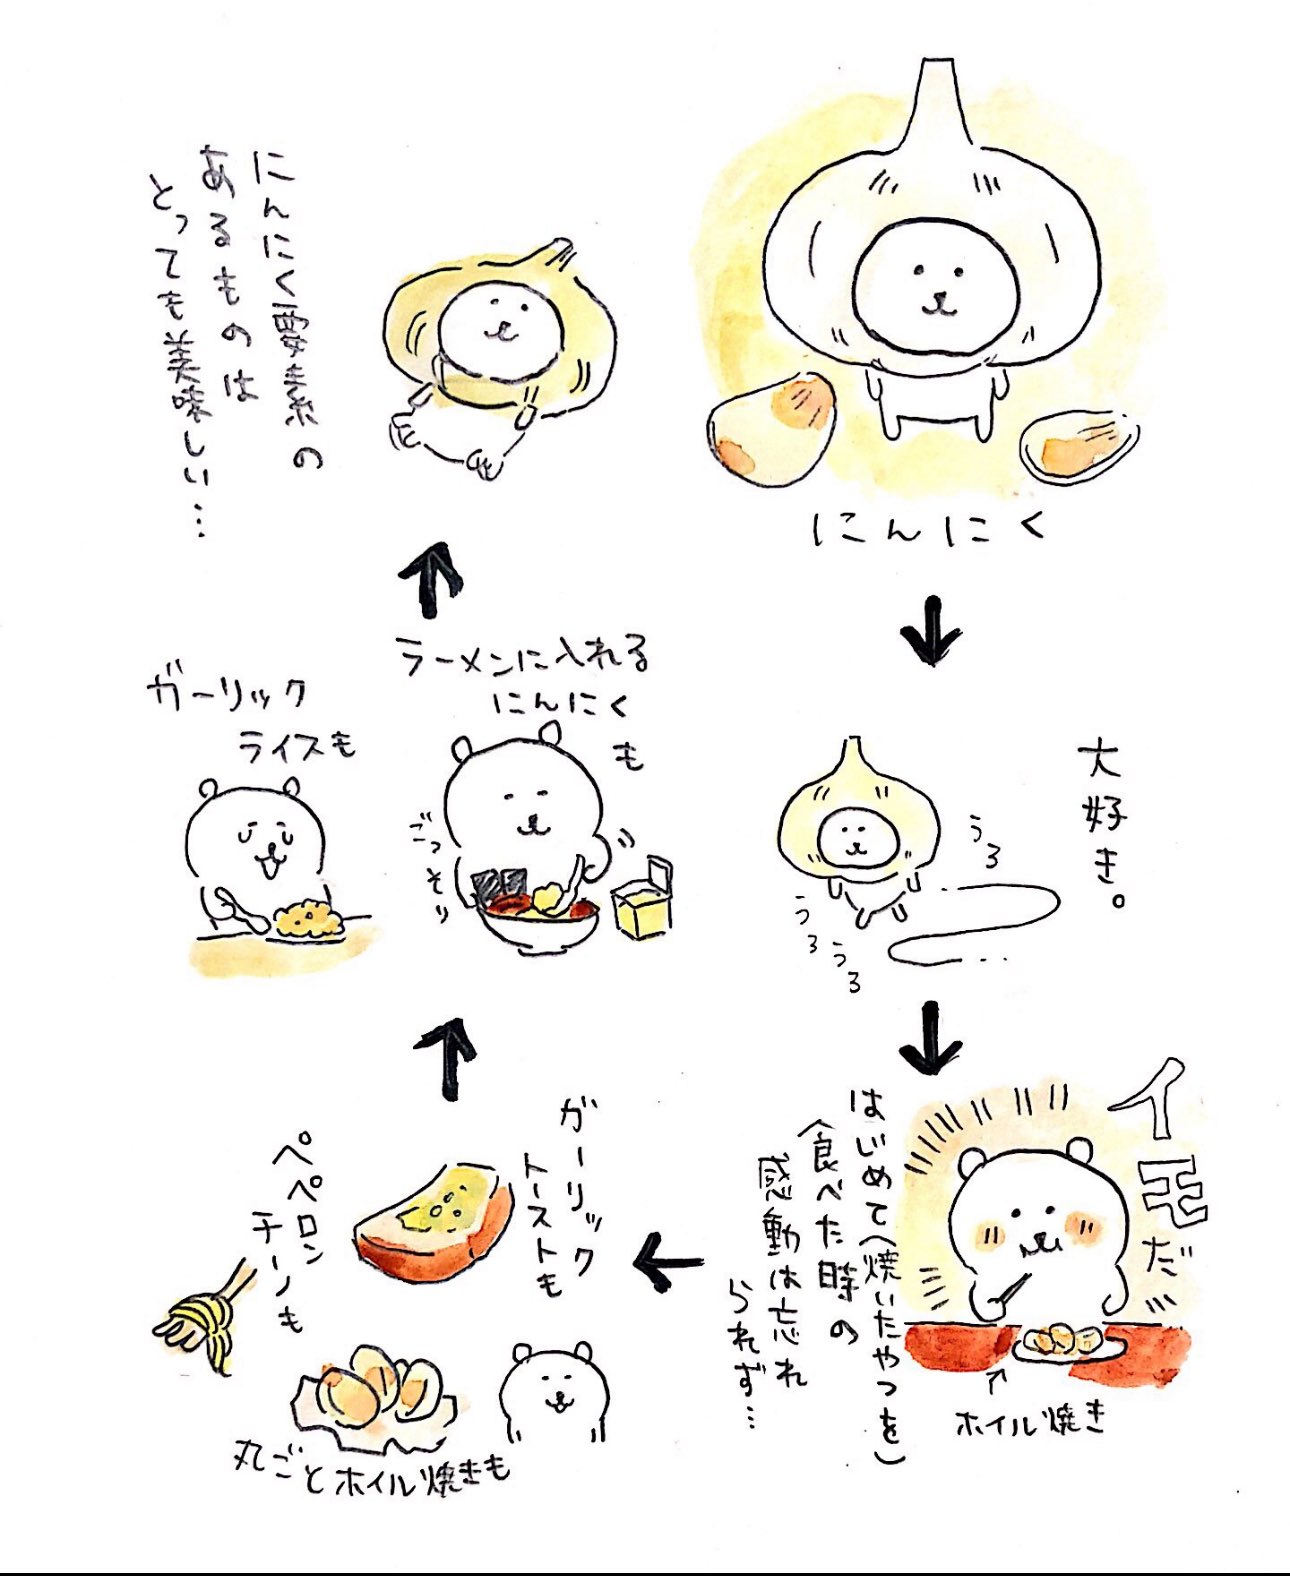 にんにく
大好き。
うろ
うろ
うろ
イモだ
はじめて(焼いたやつを)
食べた時の
感動は忘れ
られず…
ホイル焼き
ガーリック
トーストも
ペペロン
チーノも
丸ごとホイル焼きも
ラーメンに入れる
にんにく
も
ごっそり
ガーリック
ライスも
にんにく要素の
あるものは
とっても美味しい…